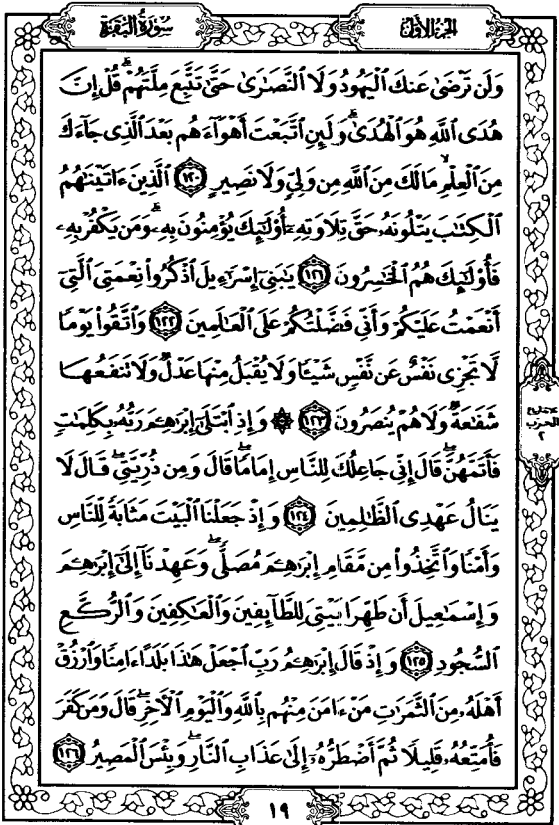 سُورَةُ البَقَرَةِ
الجُزءُ الأَوَّلُ
وَلَن تَرْضَىٰ عَنكَ ٱلْيَهُودُ وَلَا ٱلنَّصَٰرَىٰ حَتَّىٰ تَتَّبِعَ مِلَّتَهُمْ ۗ قُلْ إِنَّ
هُدَى ٱللَّهِ هُوَ ٱلْهُدَىٰ ۗ وَلَئِنِ ٱتَّبَعْتَ أَهْوَآءَهُم بَعْدَ ٱلَّذِى جَآءَكَ
مِنَ ٱلْعِلْمِ ۙ مَا لَكَ مِنَ ٱللَّهِ مِن وَلِىٍّ وَلَا نَصِيرٍ ١٢٠ ٱلَّذِينَ ءَاتَيْنَٰهُمُ
ٱلْكِتَٰبَ يَتْلُونَهُۥ حَقَّ تِلَاوَتِهِۦٓ أُو۟لَٰٓئِكَ يُؤْمِنُونَ بِهِۦ ۗ وَمَن يَكْفُرْ بِهِۦ
فَأُو۟لَٰٓئِكَ هُمُ ٱلْخَٰسِرُونَ ١٢١ يَٰبَنِىٓ إِسْرَٰٓءِيلَ ٱذْكُرُوا۟ نِعْمَتِىَ ٱلَّتِىٓ
أَنْعَمْتُ عَلَيْكُمْ وَأَنِّى فَضَّلْتُكُمْ عَلَى ٱلْعَٰلَمِينَ ١٢٢ وَٱتَّقُوا۟ يَوْمًا
لَّا تَجْزِى نَفْسٌ عَن نَّفْسٍ شَيْـًٔا وَلَا يُقْبَلُ مِنْهَا عَدْلٌ وَلَا تَنفَعُهَا
شَفَٰعَةٌ وَلَا هُمْ يُنصَرُونَ ١٢٣ ۞ وَإِذِ ٱبْتَلَىٰٓ إِبْرَٰهِـۧمَ رَبُّهُۥ بِكَلِمَٰتٍ
فَأَتَمَّهُنَّ ۖ قَالَ إِنِّى جَاعِلُكَ لِلنَّاسِ إِمَامًا ۖ قَالَ وَمِن ذُرِّيَّتِى ۖ قَالَ لَا
يَنَالُ عَهْدِى ٱلظَّٰلِمِينَ ١٢٤ وَإِذْ جَعَلْنَا ٱلْبَيْتَ مَثَابَةً لِّلنَّاسِ
وَأَمْنًا وَٱتَّخِذُوا۟ مِن مَّقَامِ إِبْرَٰهِـۧمَ مُصَلًّى ۖ وَعَهِدْنَآ إِلَىٰٓ إِبْرَٰهِـۧمَ
وَإِسْمَٰعِيلَ أَن طَهِّرَا بَيْتِىَ لِلطَّآئِفِينَ وَٱلْعَٰكِفِينَ وَٱلرُّكَّعِ
ٱلسُّجُودِ ١٢٥ وَإِذْ قَالَ إِبْرَٰهِـۧمُ رَبِّ ٱجْعَلْ هَٰذَا بَلَدًا ءَامِنًا وَٱرْزُقْ
أَهْلَهُۥ مِنَ ٱلثَّمَرَٰتِ مَنْ ءَامَنَ مِنْهُم بِٱللَّهِ وَٱلْيَوْمِ ٱلْءَاخِرِ ۖ قَالَ وَمَن كَفَرَ
فَأُمَتِّعُهُۥ قَلِيلًا ثُمَّ أَضْطَرُّهُۥٓ إِلَىٰ عَذَابِ ٱلنَّارِ ۖ وَبِئْسَ ٱلْمَصِيرُ ١٢٦
الحزب
٢
١٩